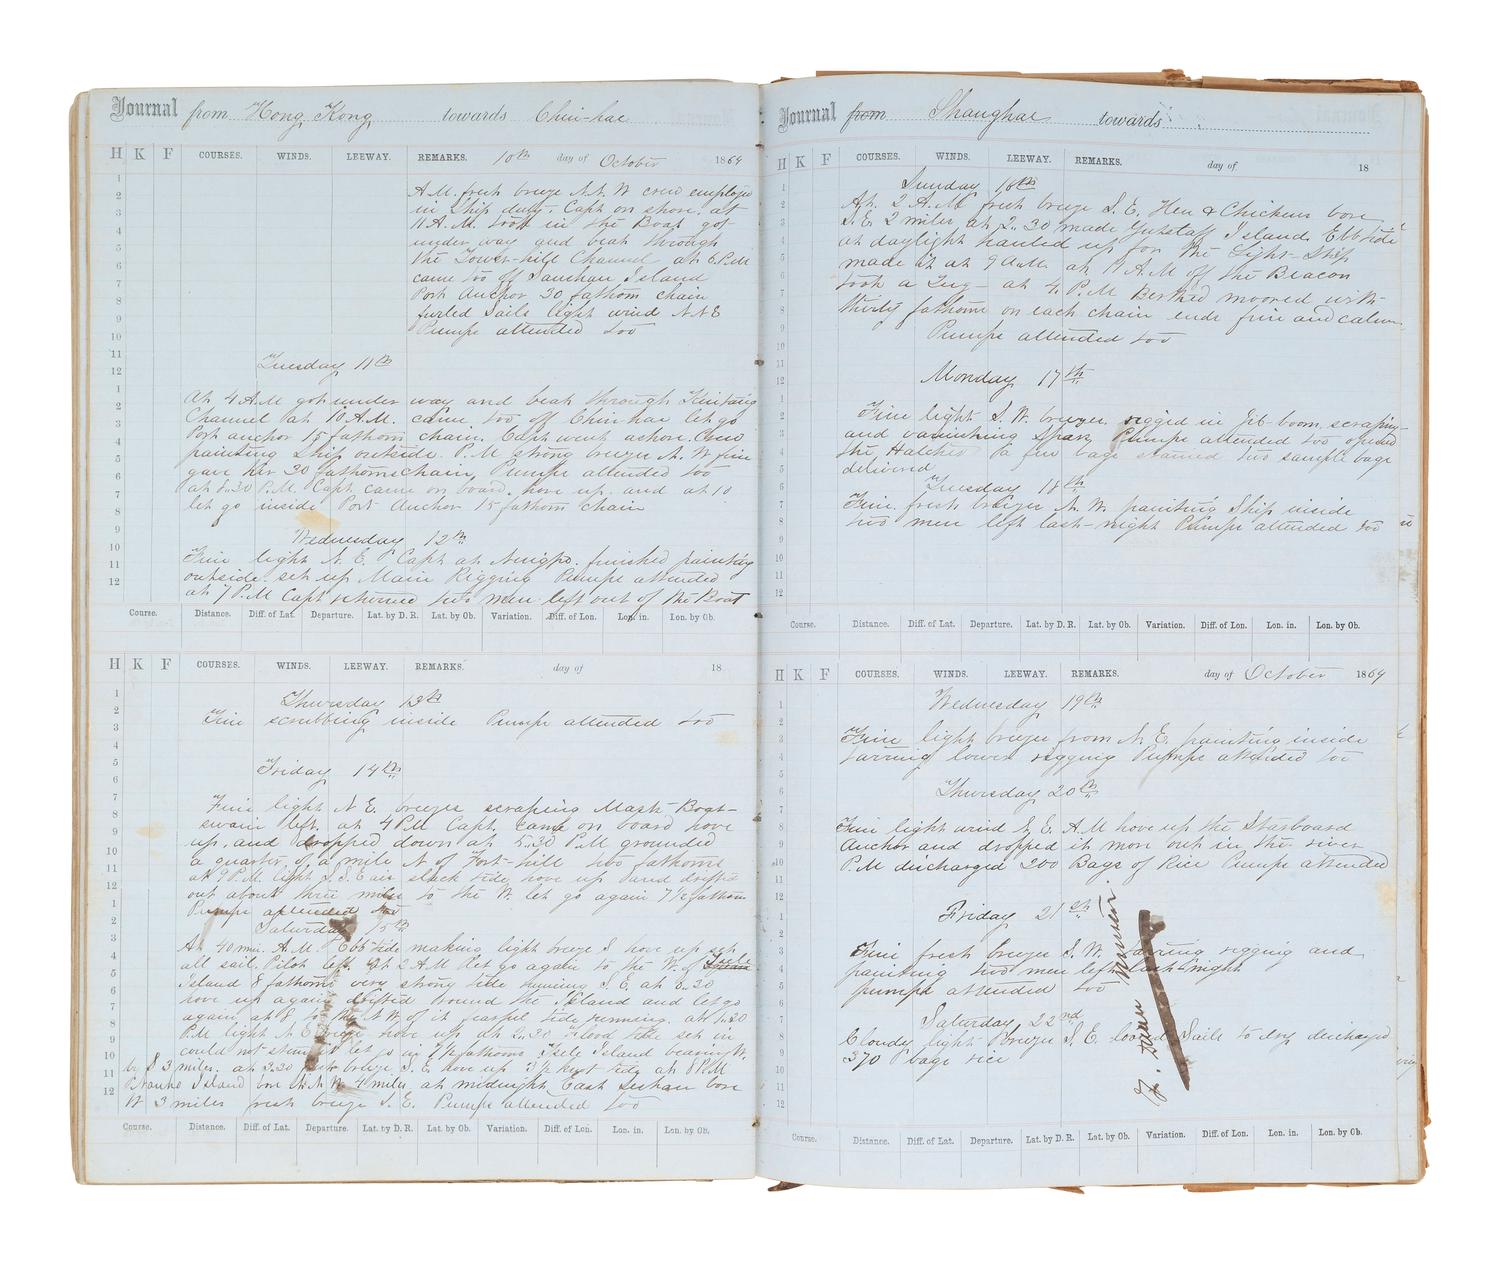 Journal from Hong Kong towards Chin-hae
H K F COURSES. WINDS. LEEWAY. REMARKS. 10th day of October 1864
A.M. fresh breeze N.N.W crew employed
in Ship duty. Capt on shore. at
11 A.M. took in the Boat got
under way and beat through
the Tower-hill Channel at 6 P.M
came too off Lanchan Island
Port Anchor 30 fathom chain
furled Sails light wind N N E
Pumps attended too
Tuesday 11th
At 4 A.M got under way and beat through Kintang
Channel at 10 A.M. came too off Chin-hae let go
Port anchor 15 fathom chain. Capt went ashore. Crew
painting Ship outside. P.M strong breeze N. W fine
gave her 30 fathoms chain, Pumps attended too
at 8.30 P.M. Capt. came on board, hove up and at 10
let go inside Port Anchor 15 fathom chain
Wednesday 12th
Fine light N. E. Capt at Ningpo. finished painting
outside. set up Main Rigging Pumps attended
at 7 P.M Capt returned two men left out of the Boat
Course. Distance. Diff. of Lat. Departure. Lat. by D. R. Lat. by Ob. Variation. Diff. of Lon. Lon. in. Lon. by Ob.
H K F COURSES. WINDS. LEEWAY. REMARKS. day of 18
Thursday 13th
Fine scrubbing inside Pumps attended too
Friday 14th
Fine light N E. breezes scraping Mast- Boat-
swain left. at 4 P.M Capt. came on board hove
up, and dropped down at 5.30 P.M grounded
a quarter of a mile N of Fort-hill two fathoms
at 9 P.M. light S.S.E air slack tide, hove up and drifted
out about three miles to the W. let go again 7 1/2 fathom
Pumps attended too
Saturday 15th
At 40 min. A.M. Ebb tide making light breeze S. hove up set
all sail. Pilot left. at 2 A.M let go again to the W. of
Island 8 fathoms very strong tide running S. E. at 6.30
hove up again drifted round the Island and let go
again at 8 to the N W. of it fearful tide running. at 1.20
P.M light N. E breeze hove up at 2.30 Flood tide set in
could not stem it let go in 7 1/2 fathoms Island bearing W.
by S 3 miles. at 3.30 fresh breeze S. E hove up 3 1/2 knot tide at 8 P.M
Island bore N. N. W. 4 miles, at midnight East bore
W 3 miles fresh breeze S. E. Pumps attended too
Course. Distance. Diff. of Lat. Departure. Lat. by D. R. Lat. by Ob. Variation. Diff. of Lon. Lon. in. Lon. by Ob.
Journal from Shanghae towards
H K F COURSES. WINDS. LEEWAY. REMARKS. day of 18
Sunday 16th
At 2 A.M fresh breeze S. E. Hen & Chickens bore
S. E. 2 miles at 2.30 made Gutzlaff Island. Ebb tide
at daylight hauled up for the Light-Ship
made it at 9 A.M. at 11 A.M off the Beacon
took a Tug- at 4. P.M Berthed moored with
thirty fathoms on each chain ends fine and calm
Pumps attended too
Monday 17th
Fine light S. W. breezes rigged in Jib-boom, scraping
and varnishing Spars Pumps attended too opened
the Hatches a few bags stained two sample bags
delivered
Tuesday 18th
Fine fresh breezes N. W. painting Ship inside
two men left last-night Pumps attended too
Course. Distance. Diff. of Lat. Departure. Lat. by D. R. Lat. by Ob. Variation. Diff. of Lon. Lon. in. Lon. by Ob.
H K F COURSES. WINDS. LEEWAY. REMARKS. day of October 1864
Wednesday 19th
Fine light breezes from N. E. painting inside
tarring lower rigging Pumps attended too
Thursday 20th
Fine light wind N. E. A.M hove up the Starboard
Anchor and dropped it more out in the river
P.M discharged 200 Bags of Rice Pumps attended
Friday 21st
Fine fresh breeze S. W. tarring rigging and
painting two men left last night
pumps attended too
Saturday 22nd
Cloudy light Breeze S. E. loosed Sails to dry discharged
370 bags rice
Course. Distance. Diff. of Lat. Departure. Lat. by D. R. Lat. by Ob. Variation. Diff. of Lon. Lon. in. Lon. by Ob.